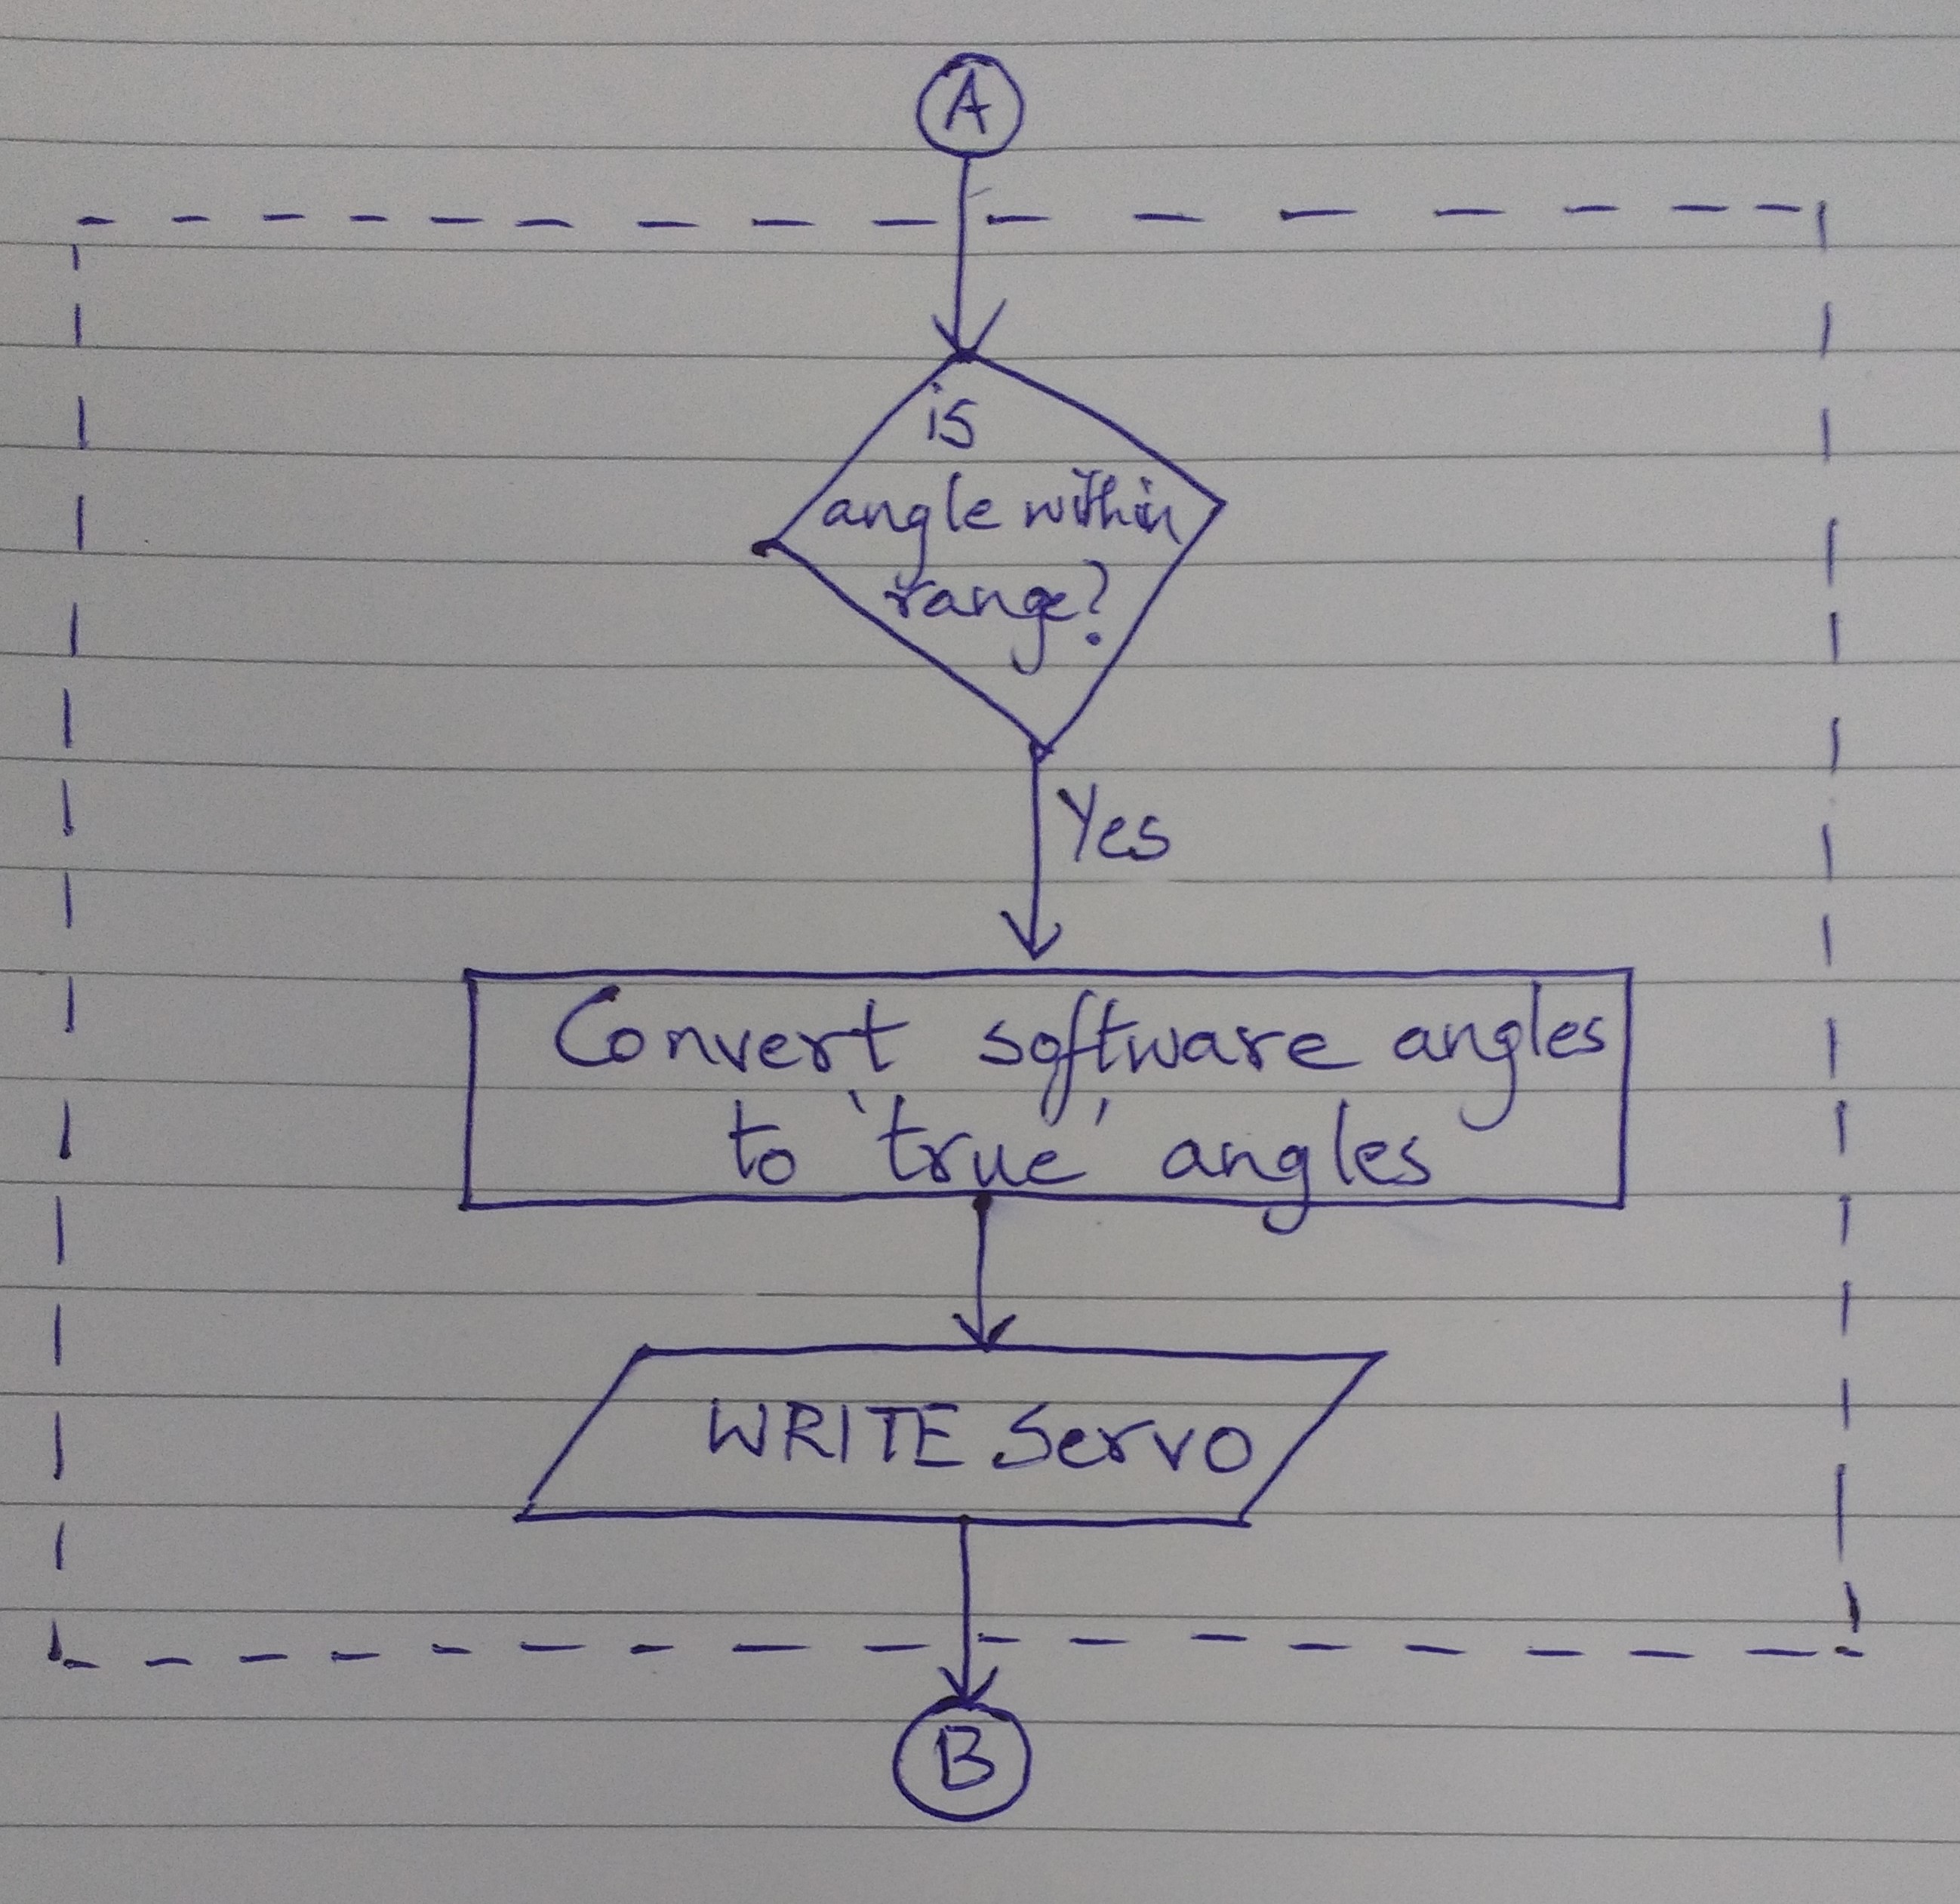 A
is
angle within
range?
Yes
Convert software angles
to 'true' angles
WRITE Servo
B